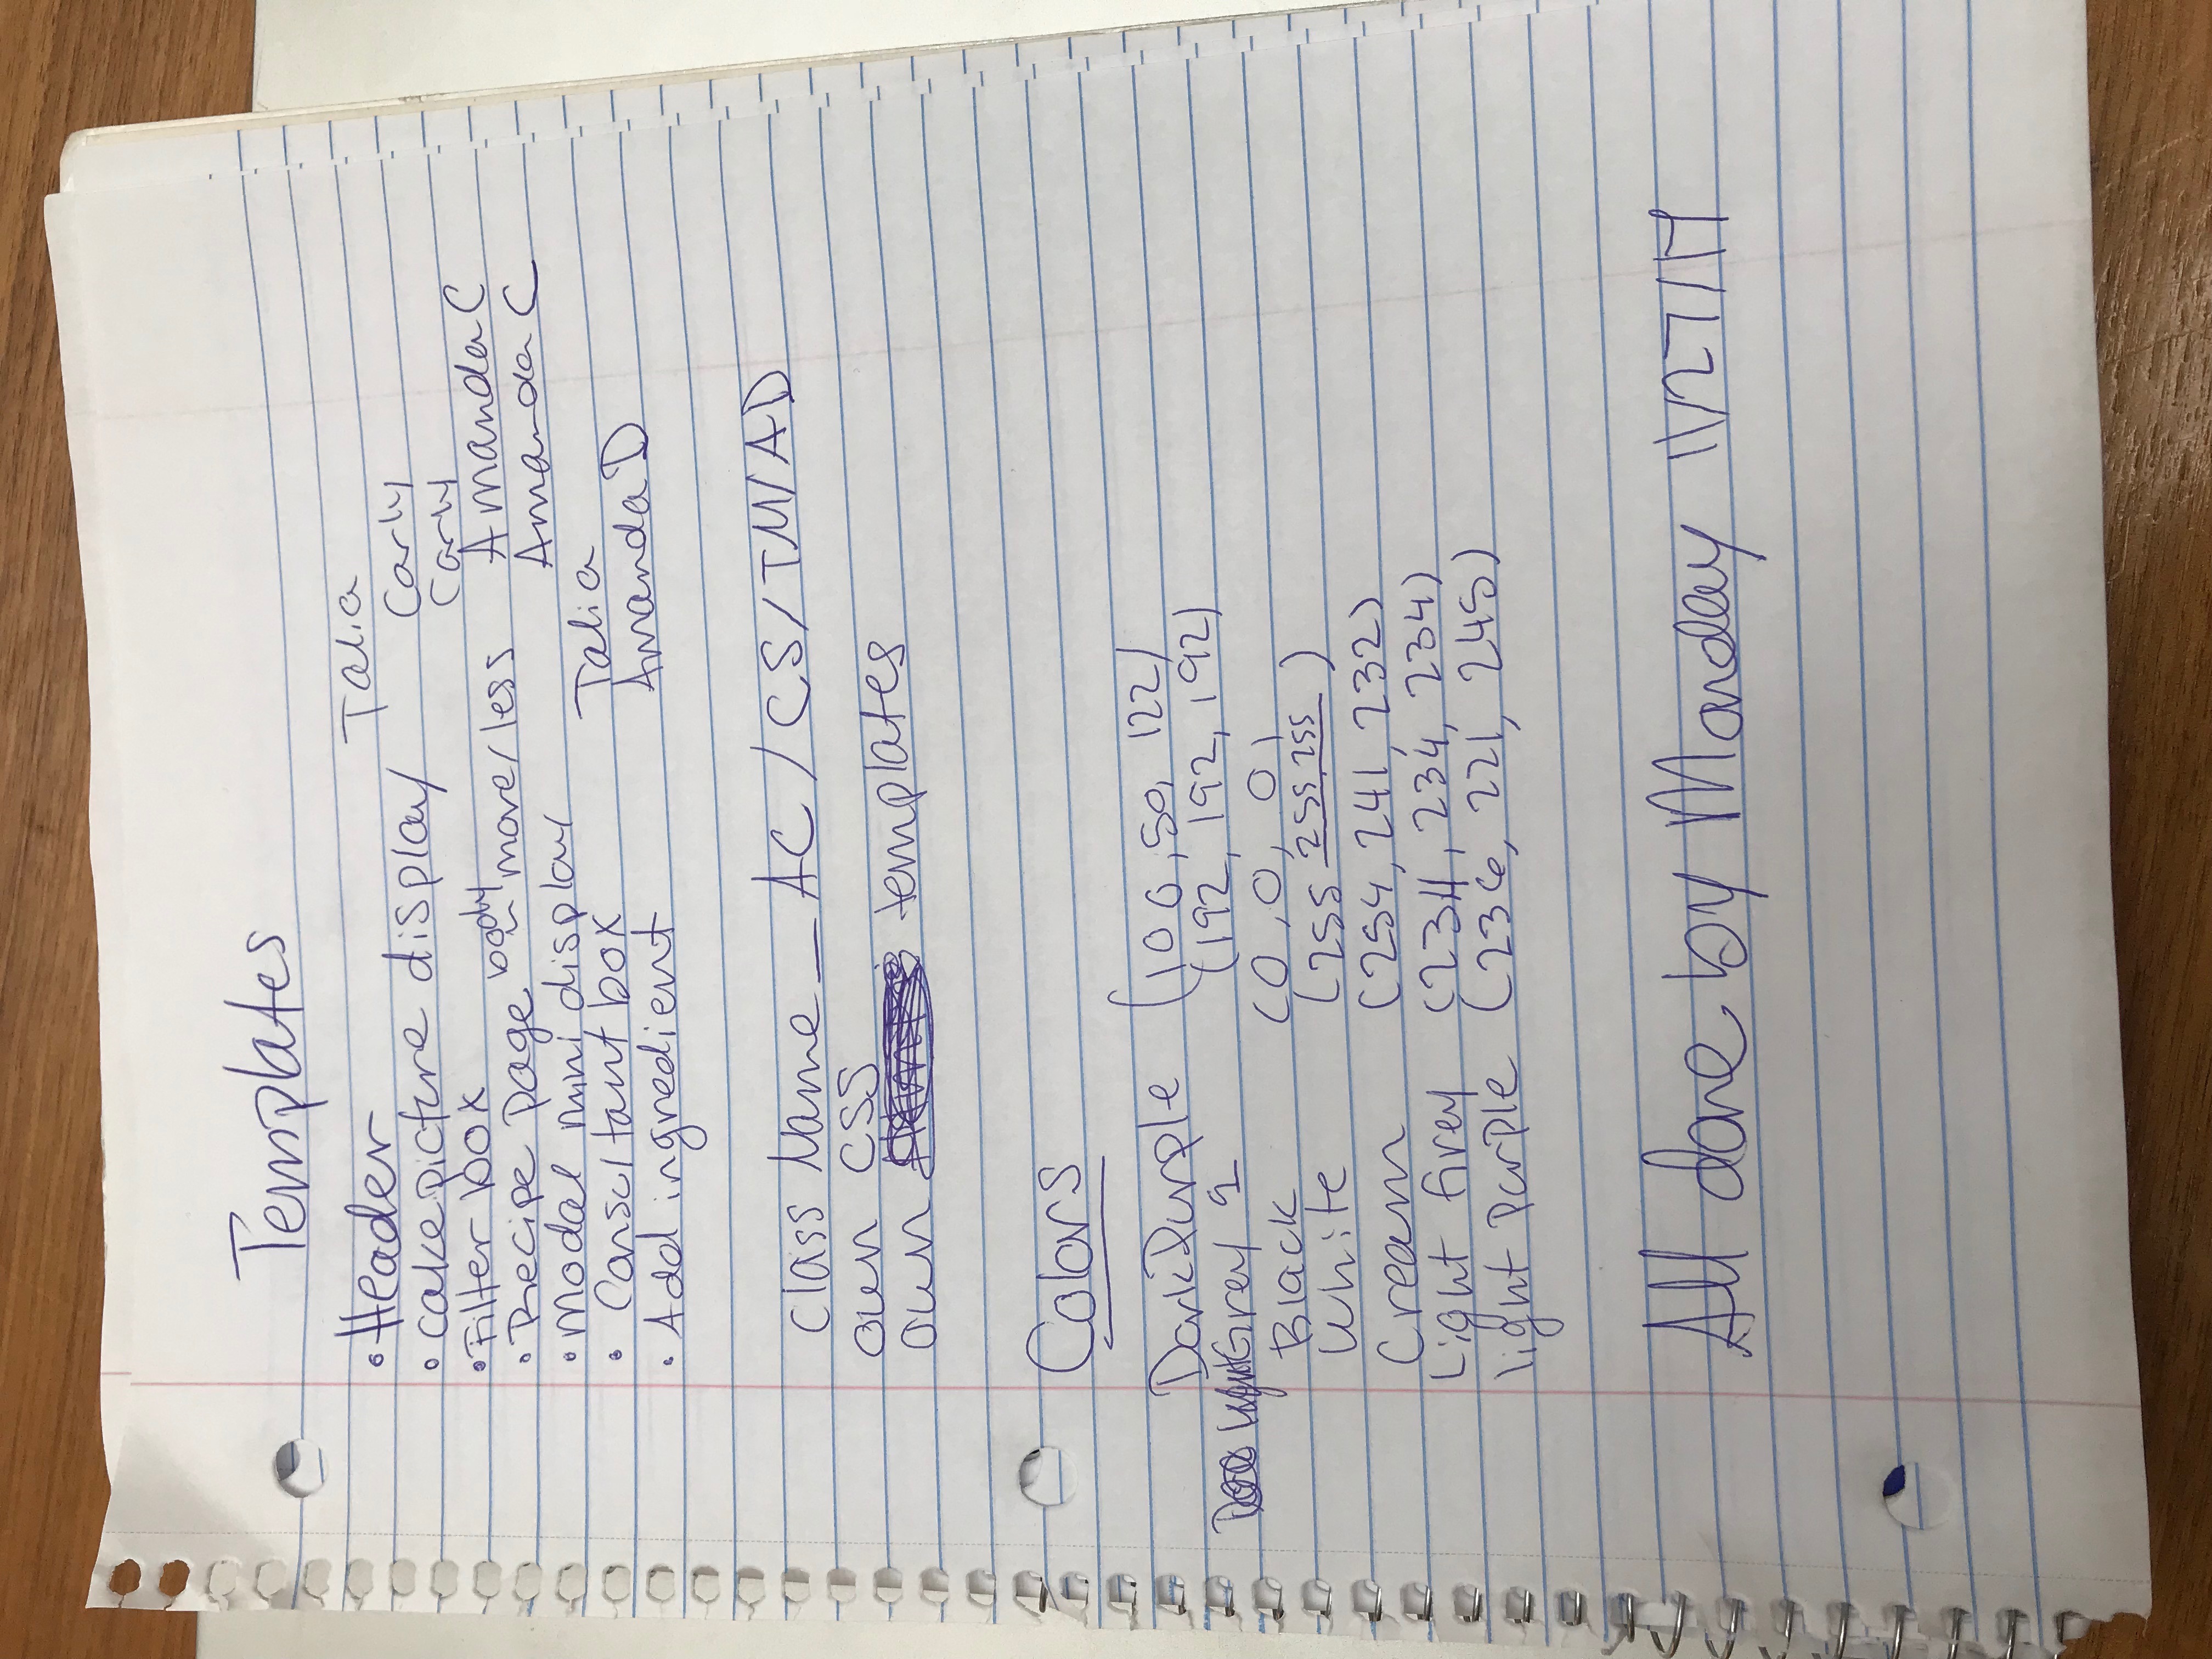 Templates
• Header Talia
• cake picture display Carly
• Filter box Carly
• Recipe Page body more/less Amanda C
• Modal mini display Amanda C
• Consultant box Talia
• Add ingredient Amanda D
Class Name _ AC / CS / TM / AD
own CSS
own templates
Colors
Dark Purple (100, 50, 122)
Light Grey 2 (192, 192, 192)
Black (0, 0, 0)
White (255 255, 255)
Cream (254, 241, 232)
Light Grey (234, 234, 234)
light Purple (236, 221, 245)
All done by Monday 11/27/17